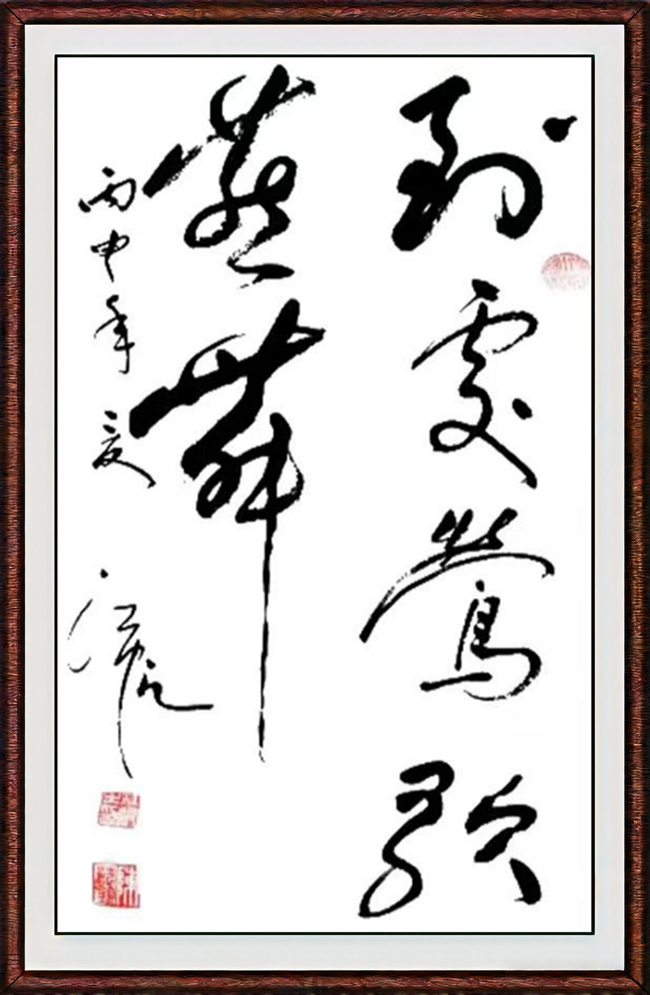 到處鶯歌
燕舞
丙申年夏 江帆